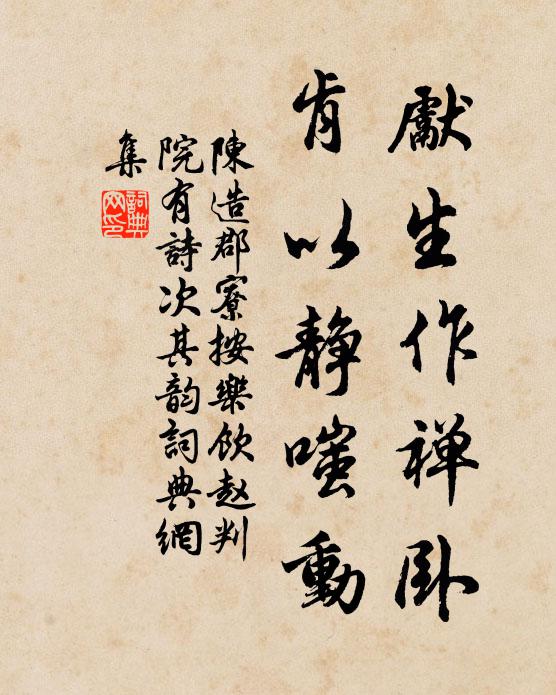 獻生作禅卧
肯以静嗤動
陳造郡寮按樂飲赵判
院有詩次其韵詞典網
集
詞典
网印